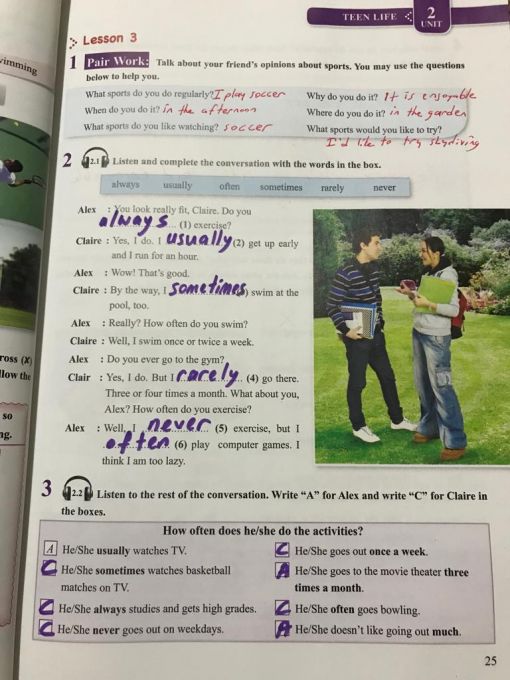 TEEN LIFE
2
UNIT
Lesson 3
1 Pair Work: Talk about your friend's opinions about sports. You may use the questions
below to help you.
What sports do you do regularly? I play soccer Why do you do it? It is enjoyable
When do you do it? in the afternoon Where do you do it? in the garden
What sports do you like watching? soccer What sports would you like to try?
I'd like to try skydiving
2 2.1 Listen and complete the conversation with the words in the box.
always usually often sometimes rarely never
Alex : You look really fit, Claire. Do you
always (1) exercise?
Claire : Yes, I do. I usually (2) get up early
and I run for an hour.
Alex : Wow! That's good.
Claire : By the way, I sometimes) swim at the
pool, too.
Alex : Really? How often do you swim?
Claire : Well, I swim once or twice a week.
Alex : Do you ever go to the gym?
Clair : Yes, I do. But I rarely (4) go there.
Three or four times a month. What about you,
Alex? How often do you exercise?
Alex : Well, I never (5) exercise, but I
often (6) play computer games. I
think I am too lazy.
3 2.2 Listen to the rest of the conversation. Write "A" for Alex and write "C" for Claire in
the boxes.
How often does he/she do the activities?
A He/She usually watches TV.
C He/She sometimes watches basketball
matches on TV.
C He/She always studies and gets high grades.
C He/She never goes out on weekdays.
C He/She goes out once a week.
A He/She goes to the movie theater three
times a month.
C He/She often goes bowling.
A He/She doesn't like going out much.
25
wimming
ross (X)
llow the
so
ng.